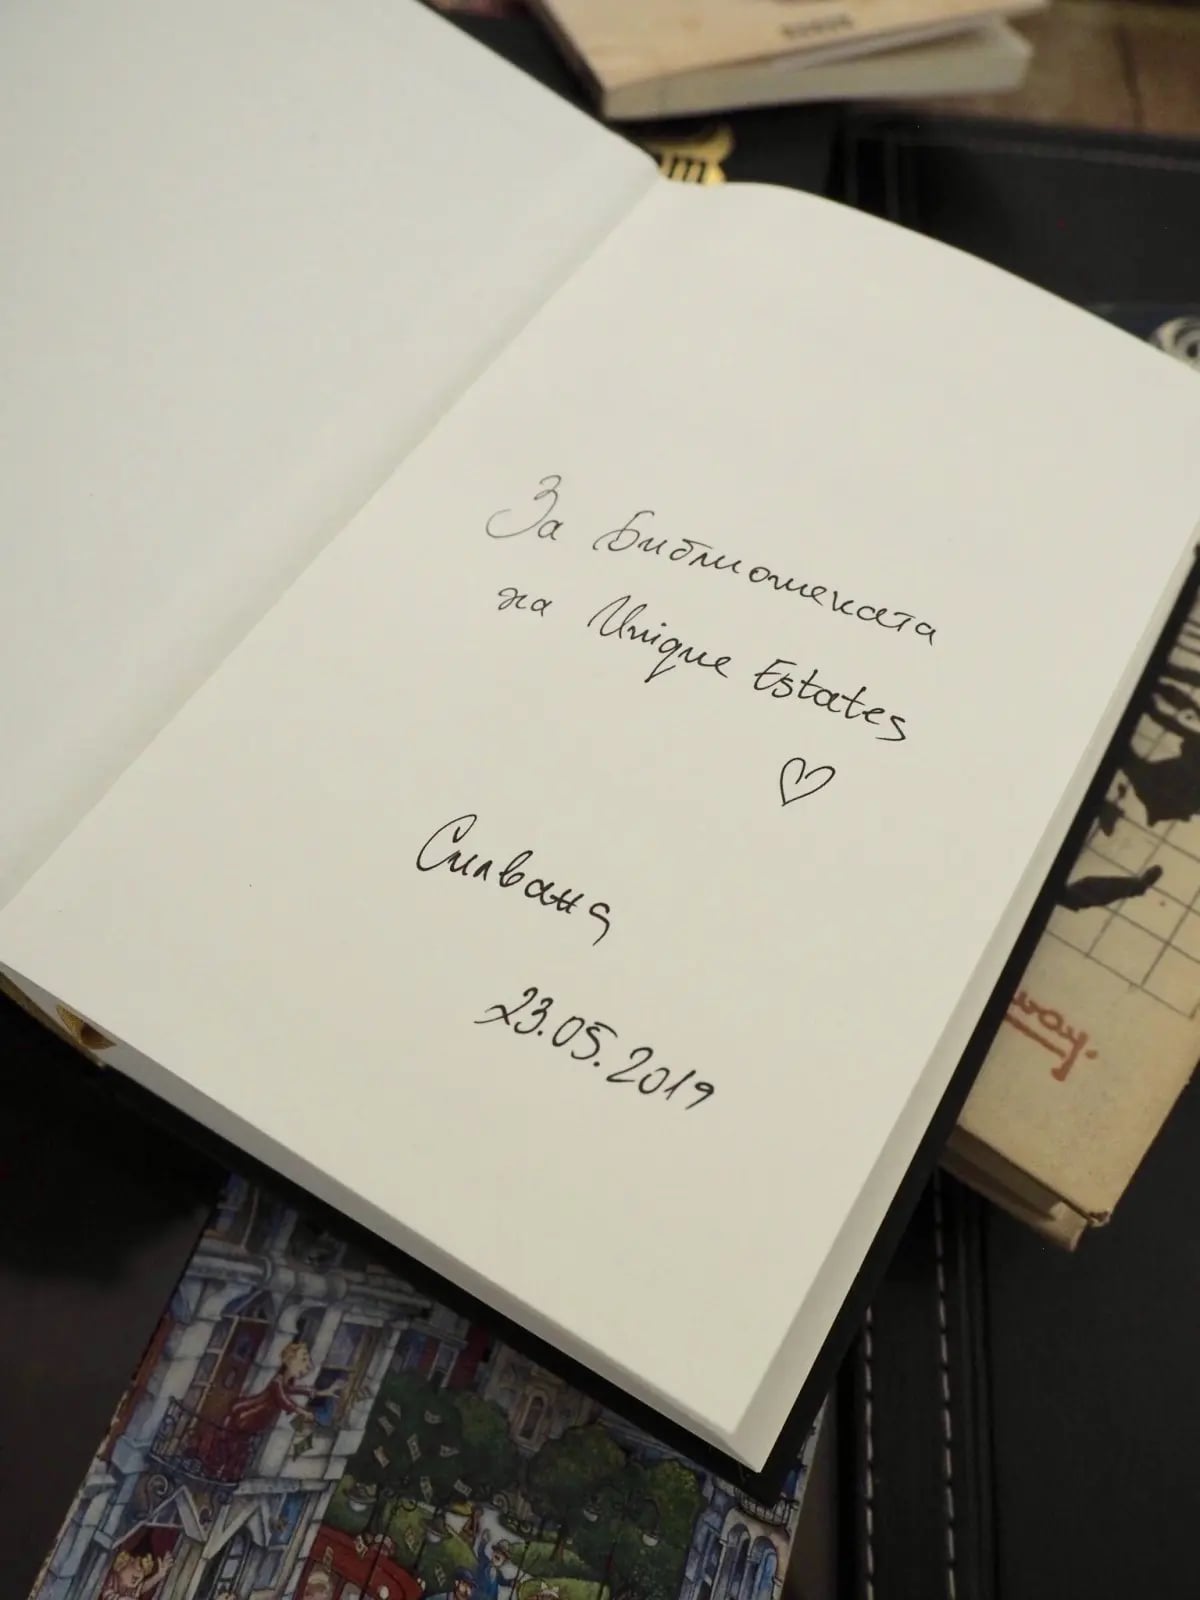 За Библиотеката
на Unique Estates
♡
Силвана
23.05.2019